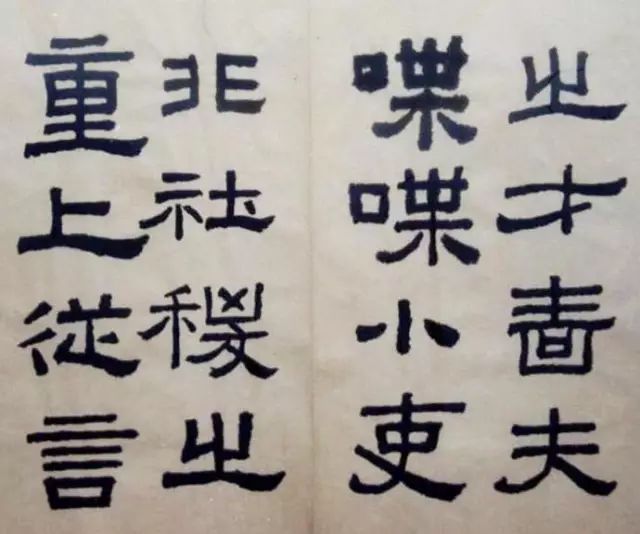 之才啬夫
喋喋小吏
非社稷之
重上從言